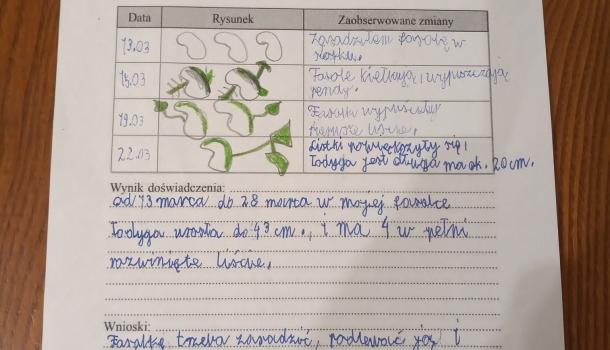 Data Rysunek Zaobserwowane zmiany
13.03 Zasadziłem fasolę w
słoiku.
15.03 Fasole kiełkują i wypuszczają
pendy.
19.03 Fasolki wypuściły
pierwsze liście.
22.03 Listki powiększyły się i
łodyga jest długa ma ok. 20 cm.
Wynik doświadczenia:
od 13 marca do 28 marca w mojej fasolce
łodyga urosła do 43 cm., i ma 4 w pełni
rozwinięte liście.
Wnioski:
Fasolkę trzeba zasadzić, podlewać ją i